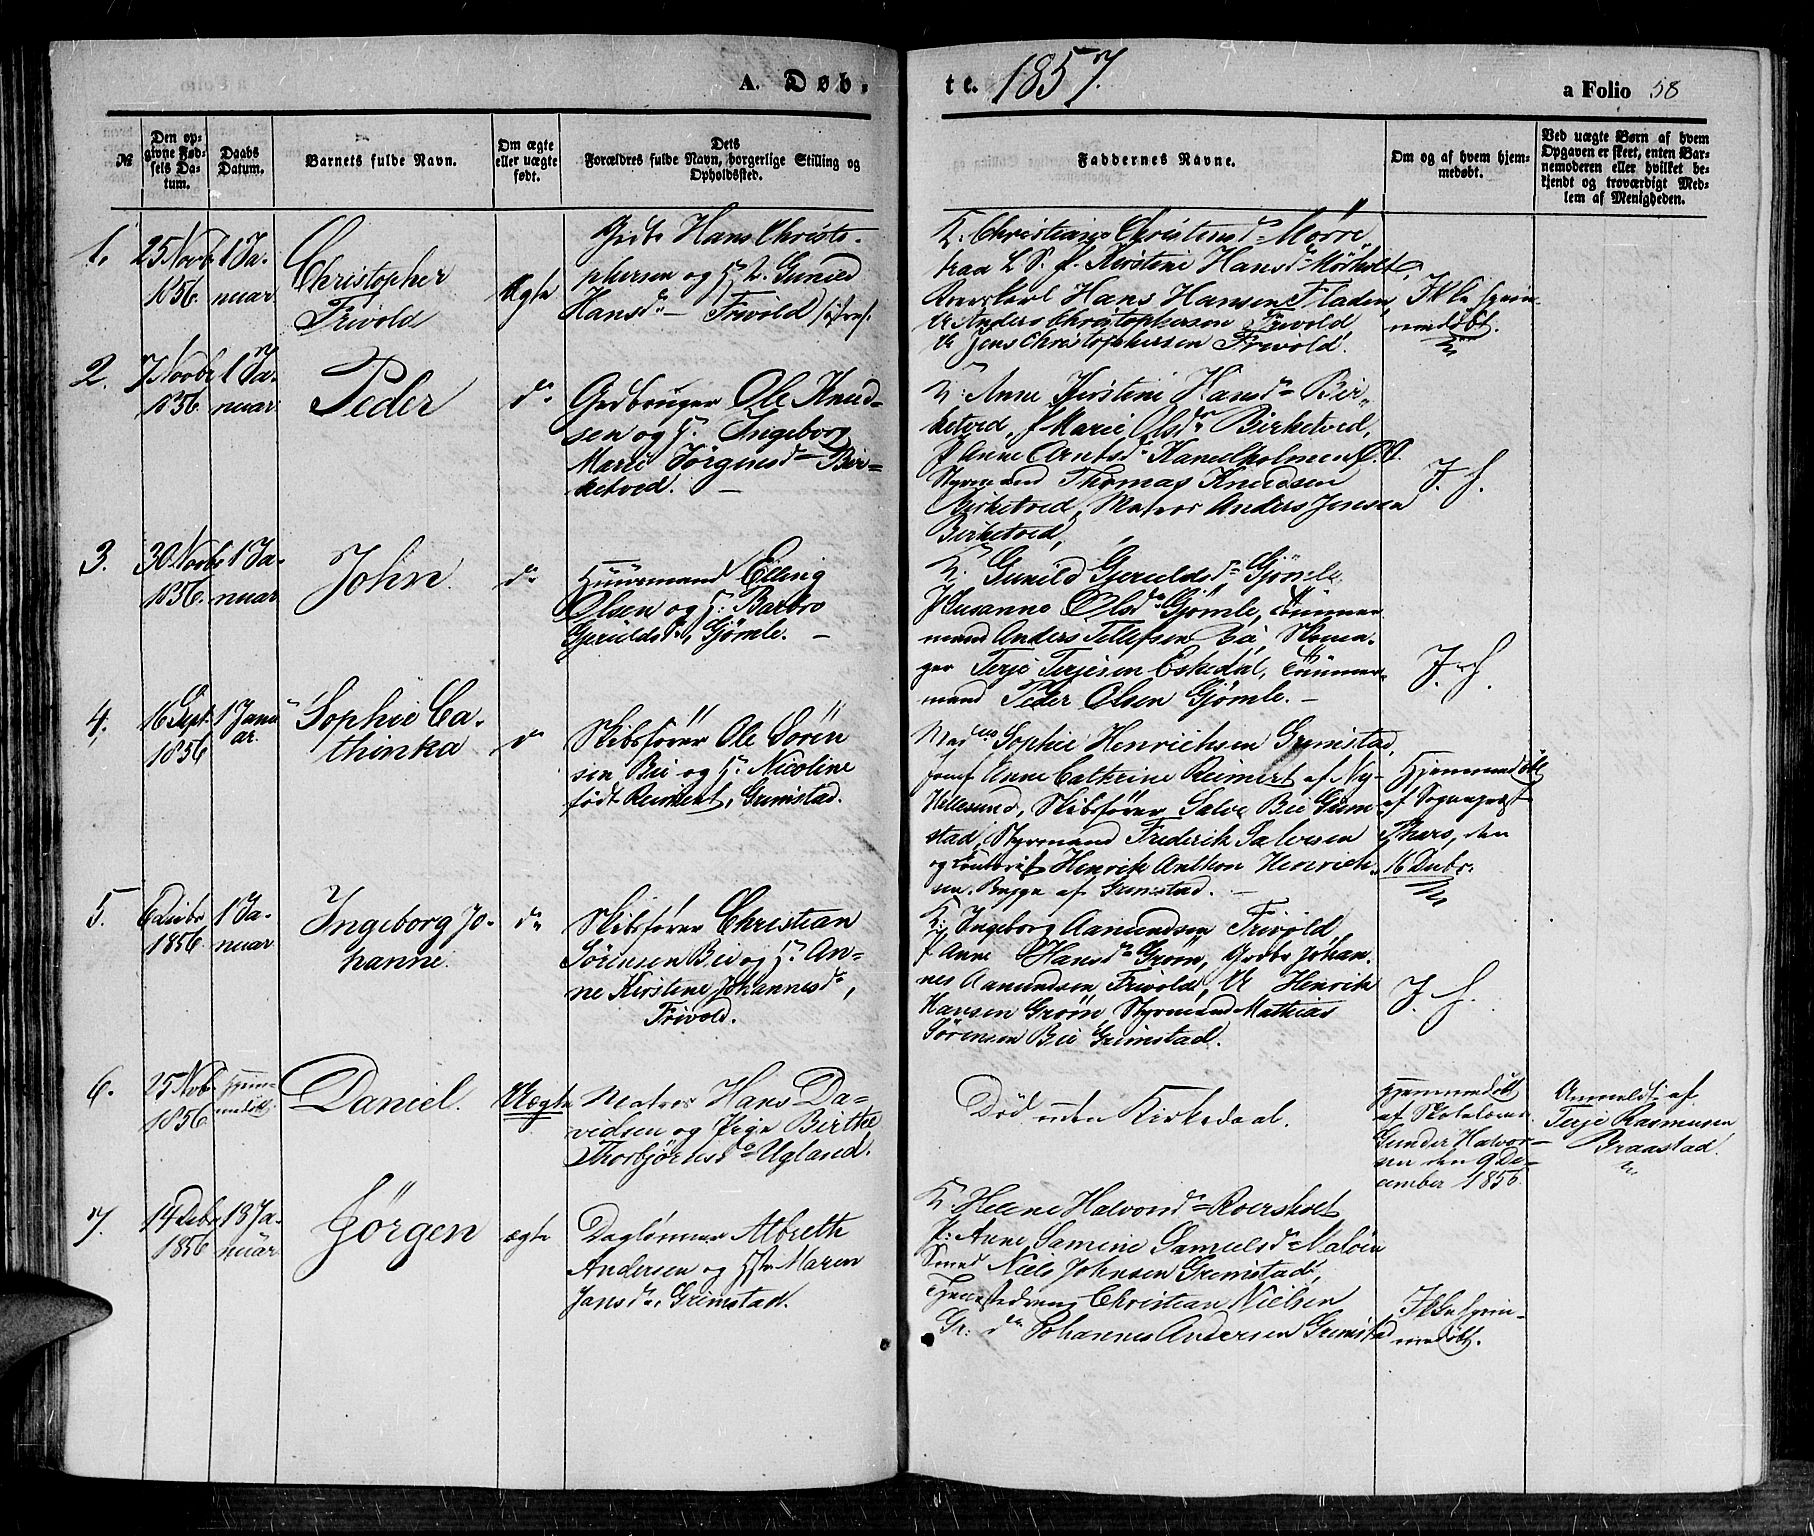 A. Døb-
te. 1857.
a Folio 58
№
Den op-
givne Fød-
sels Da-
tum.
Daabs
Datum.
Barnets fulde Navn.
Om ægte
eller uægte
født.
Dets
Forældres fulde Navn, borgerlige Stilling og
Opholdssted.
Faddernes Navne.
Om og af hvem hjem-
medøbt.
Ved uægte Børn af hvem
Opgaven er skeet, enten Bar-
nemoderen eller hvilket be-
kjendt og troværdigt Med-
lem af Menigheden.
1.
25 Novb
1856.
1 Ja-
nuar
Christopher
Frivold
Ægte
Grdb Hans Christo-
phersen og H Gunild
Hansd Frivold
K: Christiane Christensd Morre
fraa L. S. P. Kirstine Hansd Mørholt
Hans Hansen Fladen,
U Anders Christophersen Frivold
U Jens Christophersen Frivold.
Ikke hjem-
medøbt.
2.
7 Novbr
1856.
1 Ja-
nuar
Peder
do
Grdbruger Ole Knud-
sen og H. Ingeborg
Marie Jørgensd Bir-
ketved. —
K: Anne Kirstine Hansd Bir-
ketved, P Marie Olsd Birketved,
P Anne Arntsd
Styrmand Thomas Knudsen
Birketved, Matros Anders Jensen
Birketved,
I. H.
3.
30 Novbr
1856.
1 Ja-
nuar
John
do
Huusmand Elling
Olsen og H. Barbro
Gjeruldsd, Gjømle. —
K. Gunild Gjeruldsd Gjømle
P Susanne Olsd Gjømle, Tømmer-
mand Anders Tellefsen
Terje Terjesen Eskedal, Tømmer-
mand Peder Olsen Gjømle. —
I. H.
4.
16 Sept.
1856
1 Janu-
ar.
Sophie Ca-
thinka
do
Skibsfører Ole Sören
sen Bie og H. Nicoline
født Reimert, Grimstad.
Mad Sophie Henrichsen Grimstad,
Jomf Anne Cathrine Reimert af Ny-
Hellesund, Skibsfører Salve Bie Grim-
stad, Styrmand Frederik Salvesen
og Henrik Anthon Henrich-
sen. Begge af Grimstad. —
Hjemmedøbt
af Sognepræst
den
16 Decbr.
5.
6 Decbr
1856.
1 Ja-
nuar
Ingeborg Jo-
hanne.
do
Skibsfører Christian
Sørensen Bie og H. An-
ne Kirstine Johannesd,
Frivold.
K: Ingeborg Aamundsen Frivold
P Anne Hansd Grøm, Grdbr Johan-
nes Aamundsen Frivold, U Henrik
Hansen Grøm, Styrmand Mathias
Sørensen Bie Grimstad.
I. H.
6.
25 Novb.
1856.
Hjem-
medøbt.
Daniel.
Uægte
Matros Hans Da-
vidsen og Pige Birthe
Thorbjørnsd Ugland.
Død uden Kirkedaab.
Hjemmedøbt
af Skolelærer
Gunder Halvor-
sen den 9 De-
cember 1856.
Anmeldt af
Terje Rasmusen
Braastad.
7.
14 Decbr
1856
13 Ja-
nuar
Jørgen
ægte
Daglønner Albreth
Andersen og Hst Maren
Jansd, Grimstad.
K Helene Halvorsd Roersholt
P. Anne Samine Samuelsd Maløen
Smed Niels Johnsen Grimstad,
Tjenestedreng Christian Nielsen
Gr: do Johannes Andersen Grimstad
Ikke hjem-
medøbt.